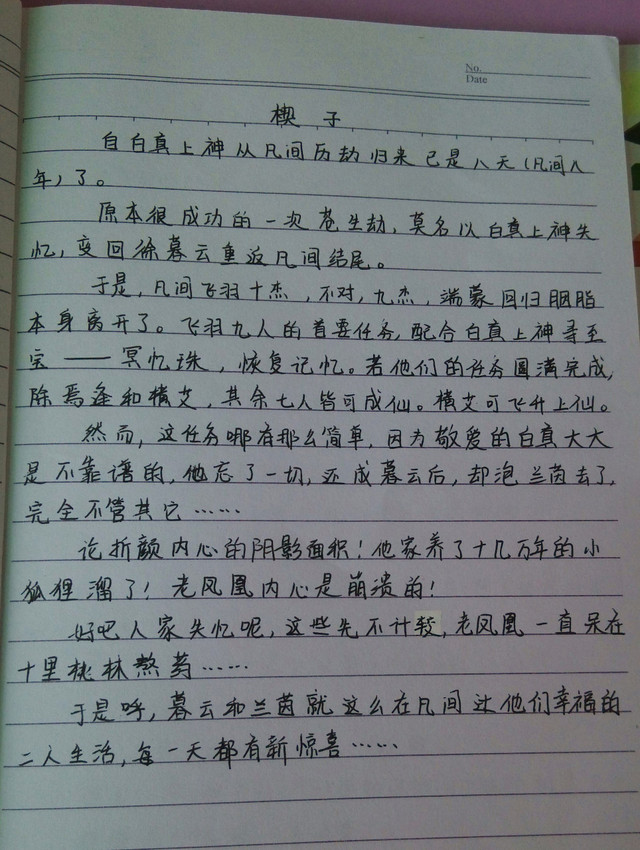 No.
Date
楔子
自白真上神从凡间历劫归来已是八天(凡间八
年)了。
原本很成功的一次苍生劫,莫名以白真上神失
忆,变回徐暮云重返凡间结尾。
于是,凡间飞羽十杰,不对,九杰,端蒙回归胭脂
本身离开了。飞羽九人的首要任务,配合白真上神寻至
宝——冥忆珠,恢复记忆。若他们的任务圆满完成,
除焉逢和横艾,其余七人皆可成仙。横艾可飞升上仙。
然而,这任务哪有那么简单,因为敬爱的白真大大
是不靠谱的,他忘了一切,还成暮云后,却泡兰茵去了,
完全不管其它……
论折颜内心的阴影面积!他家养了十几万年的小
狐狸溜了!老凤凰内心是崩溃的!
好吧人家失忆呢,这些先不计较,老凤凰一直呆在
十里桃林熬药……
于是呼,暮云和兰茵就这么在凡间过他们幸福的
二人生活,每一天都有新惊喜……